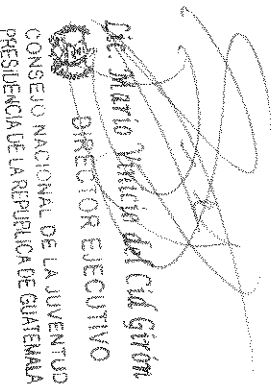 Lic. Mario Vinicio del Cid Girón
DIRECTOR EJECUTIVO
CONSEJO NACIONAL DE LA JUVENTUD
PRESIDENCIA DE LA REPUBLICA DE GUATEMALA